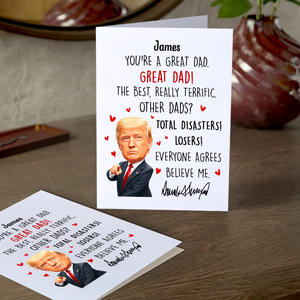 James
YOU'RE A GREAT DAD,
GREAT DAD!
THE BEST, REALLY TERRIFIC.
OTHER DADS?
TOTAL DISASTERS!
LOSERS!
EVERYONE AGREES
BELIEVE ME.
James
YOU'RE A GREAT DAD,
GREAT DAD!
THE BEST, REALLY TERRIFIC.
OTHER DADS?
TOTAL DISASTERS!
LOSERS!
EVERYONE AGREES
BELIEVE ME.